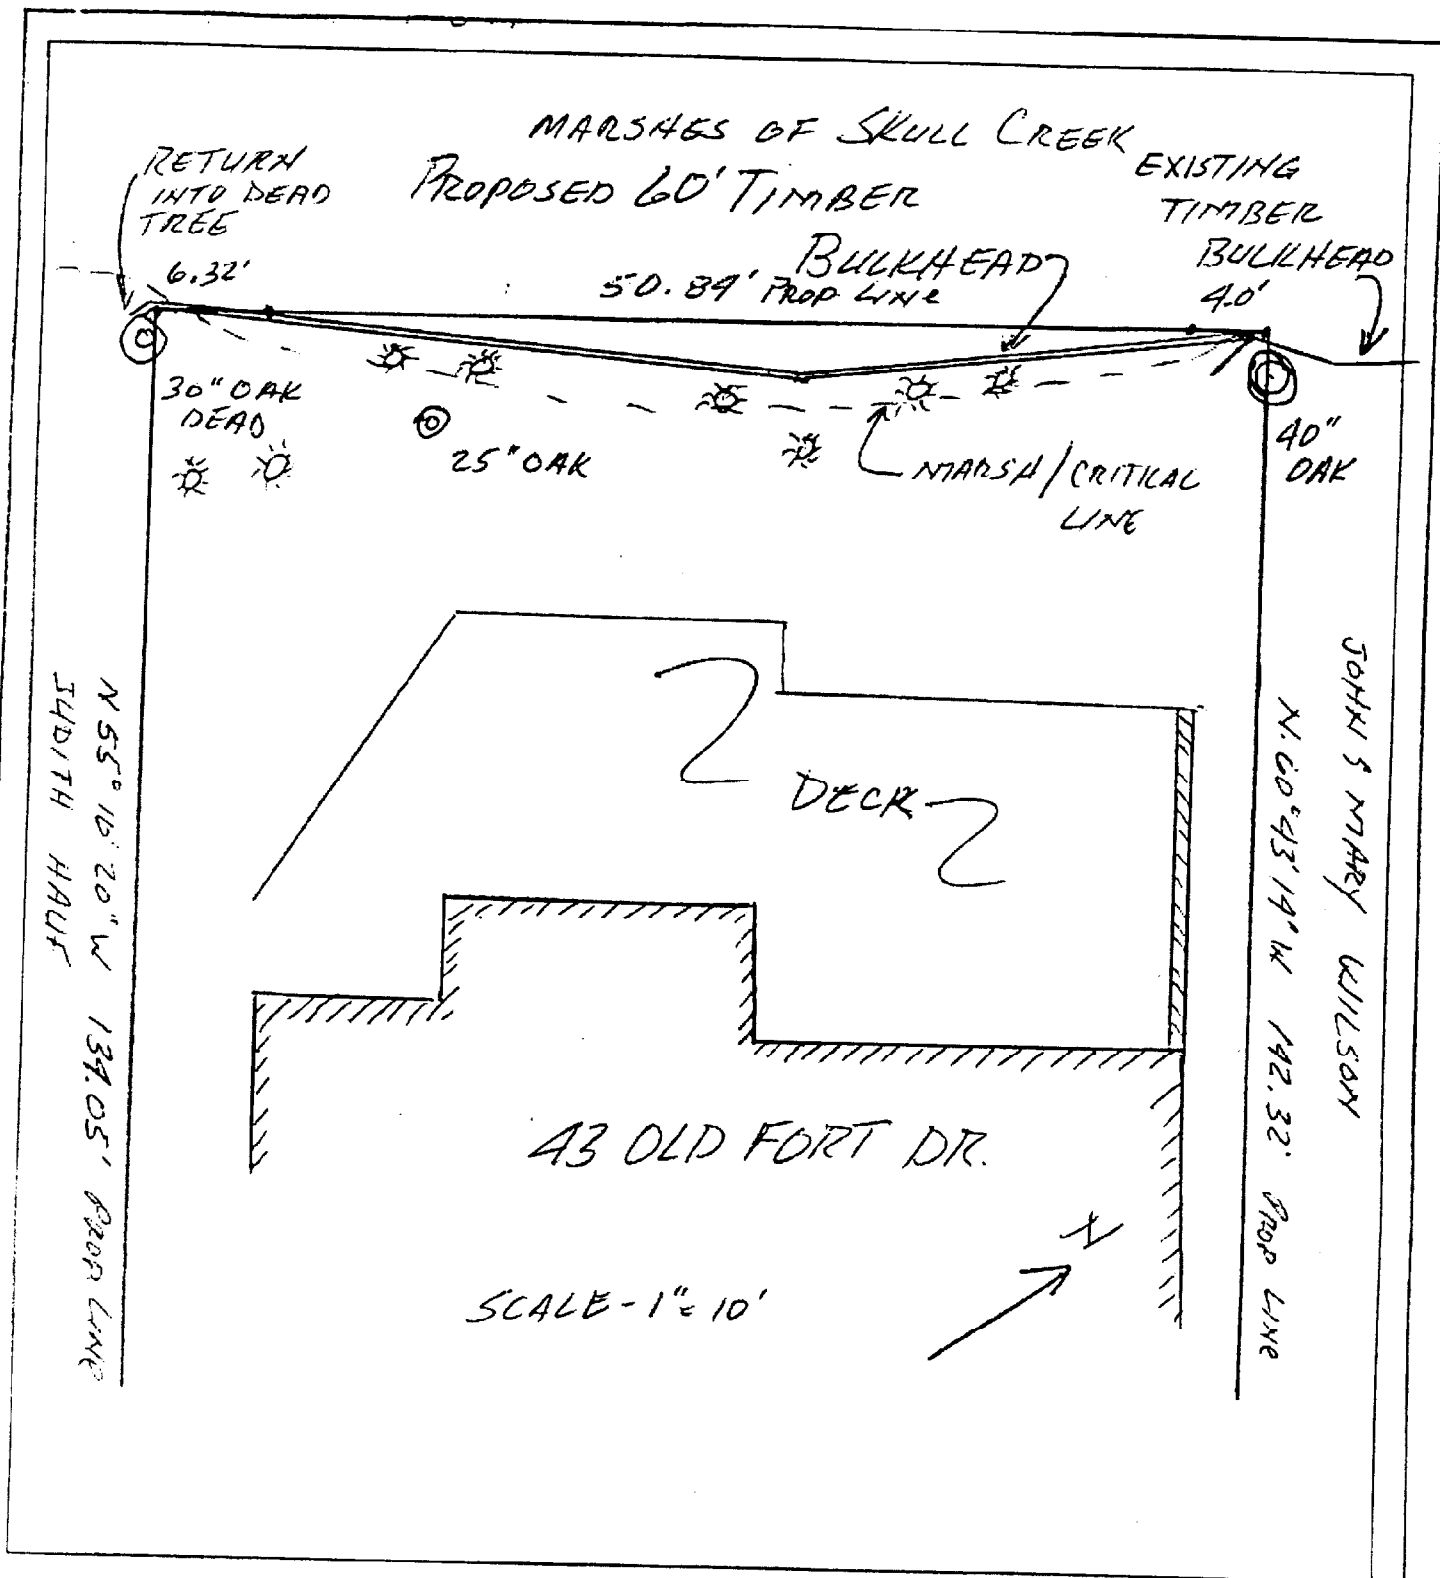 MARSHES OF SKULL CREEK
RETURN
INTO DEAD
TREE
PROPOSED 60' TIMBER
BULKHEAD
EXISTING
TIMBER
BULKHEAD
6.32'
50.89' PROP LINE
4.0'
30" OAK
DEAD
25" OAK
MARSH/CRITICAL
LINE
40"
OAK
DECK
N 55° 16' 20" W 139.05' PROP LINE
JUDITH HAUF
JOHN & MARY WILSON
N. 60° 43' 14" W 142.32' PROP LINE
43 OLD FORT DR.
N
SCALE - 1" = 10'